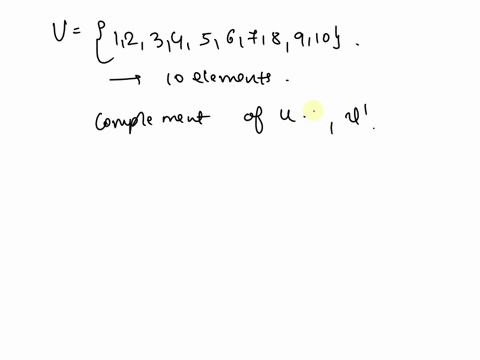 U = {1,2,3,4, 5,6,7,8,9,10}.
→ 10 elements.
complement of u.., u'.